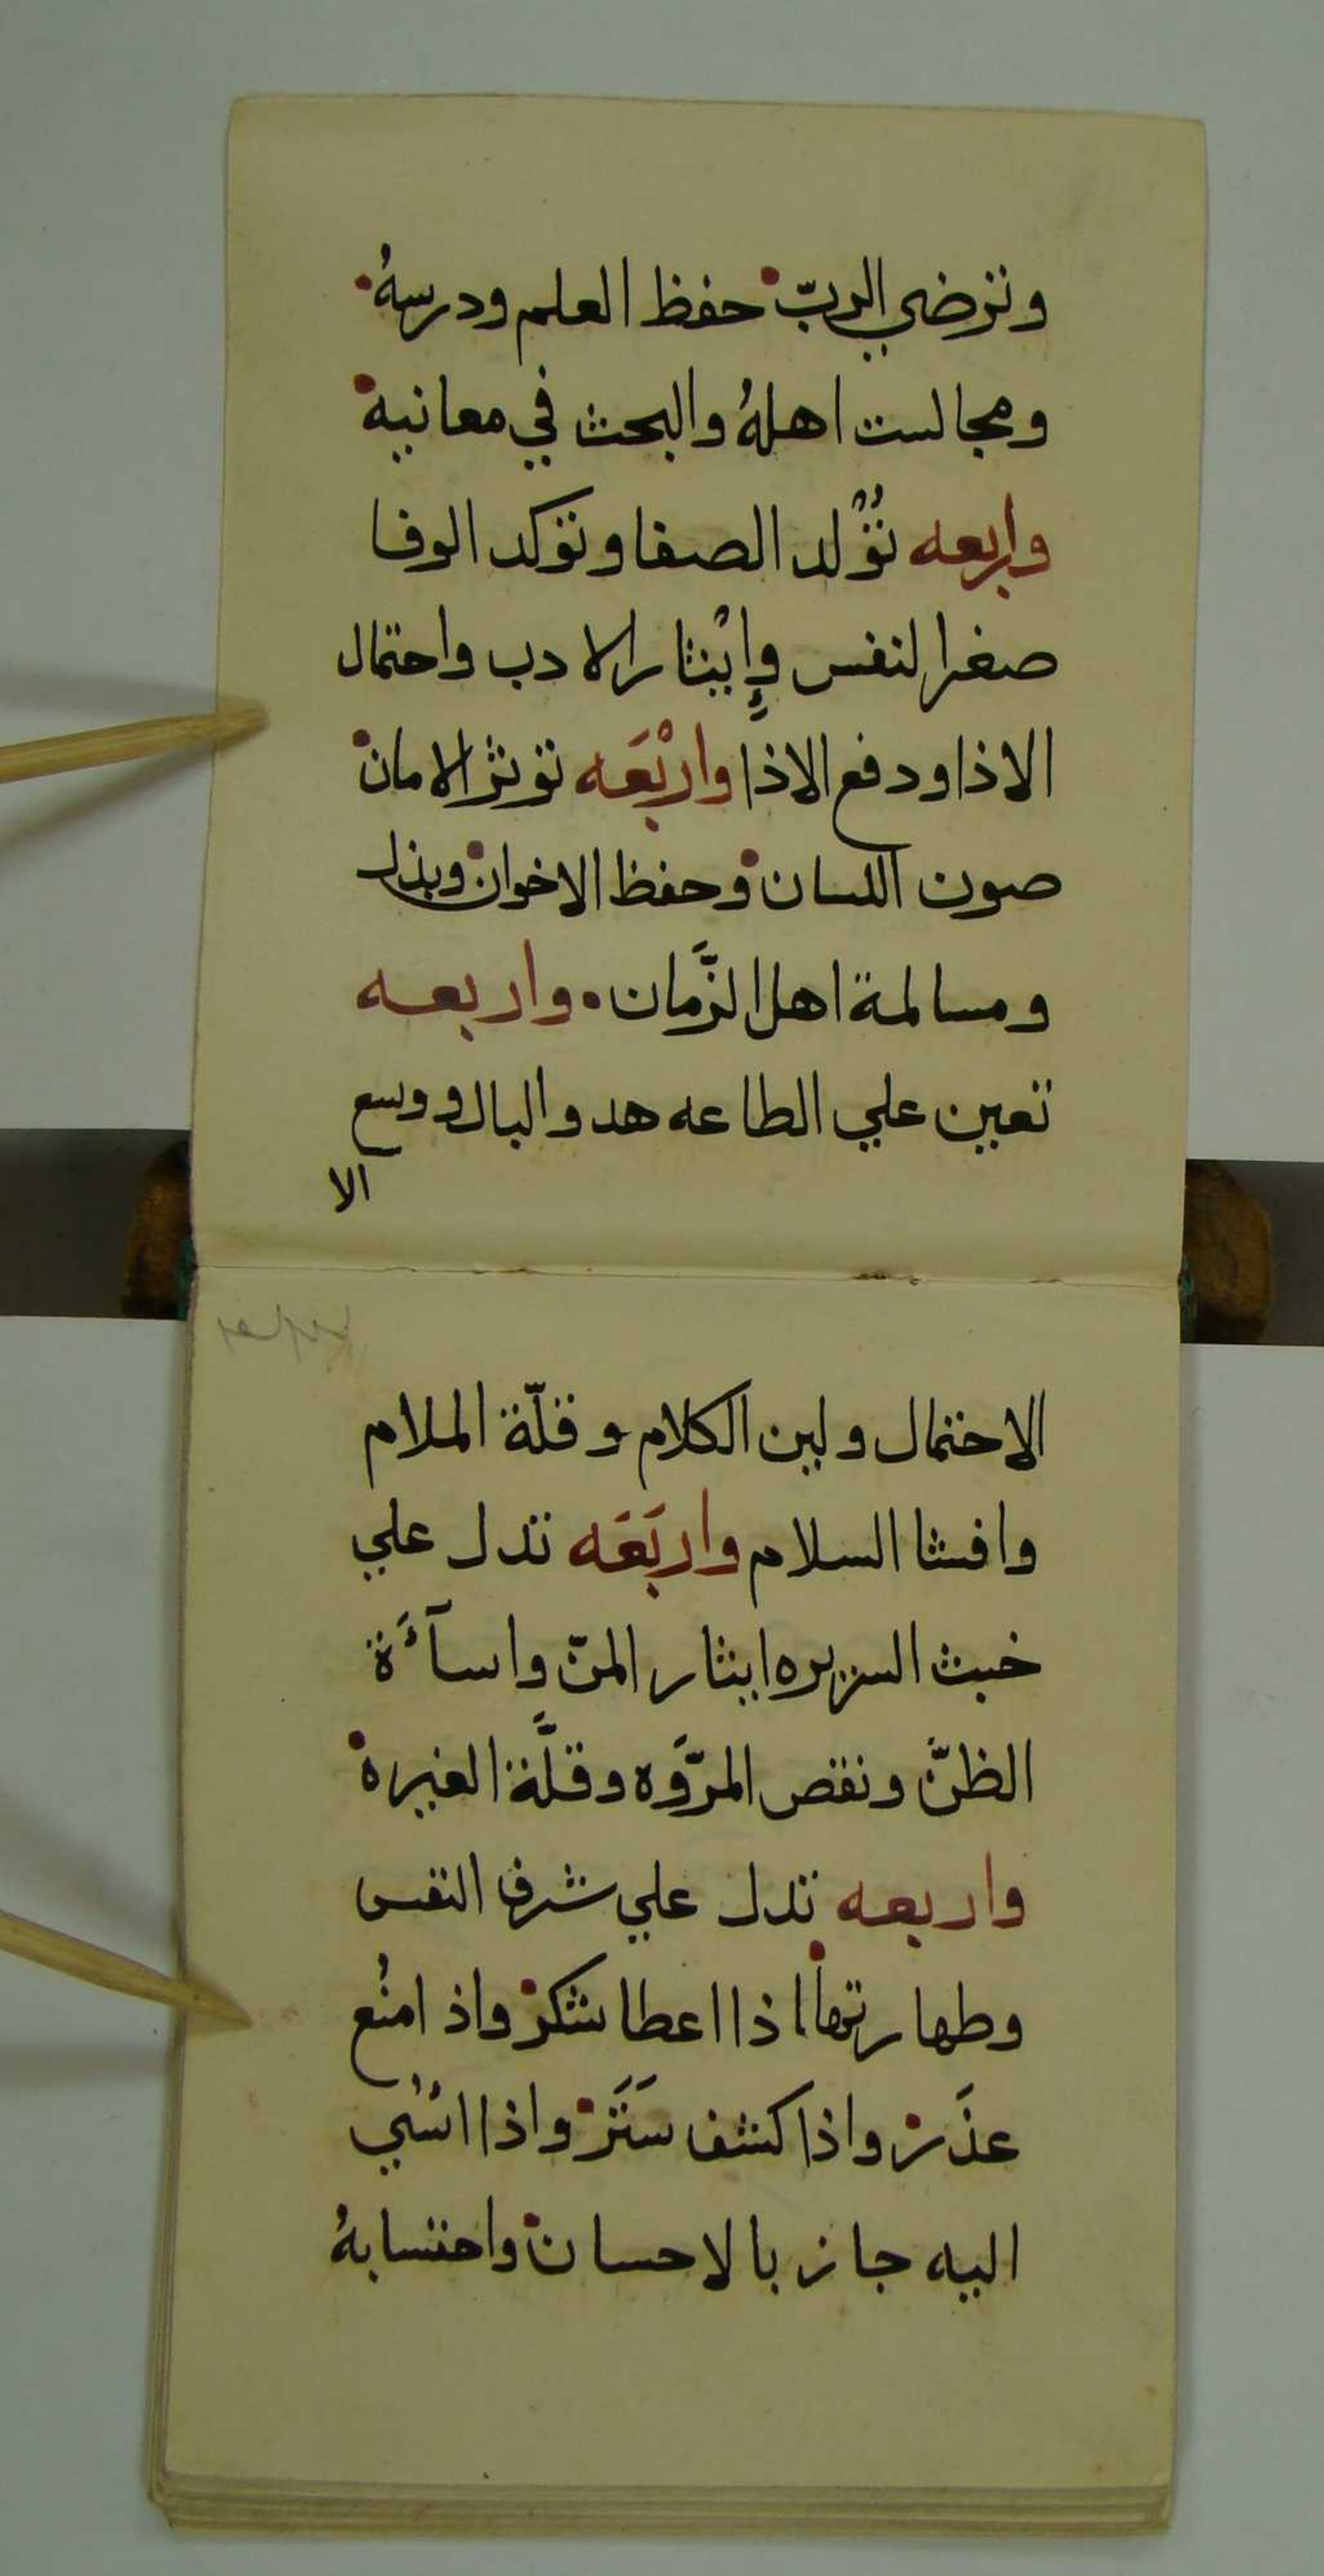 وترضي الربّ حفظ العلم ودرسهُ
ومجالست اهلهُ والبحث في معانيه
واربعه تؤُلد الصفا وتؤكد الوفا
صغر النفس وإيْثار الادب واحتمال
الاذا ودفع الاذا وارْبَعَه تؤثر الامان
صون اللسان وحفظ الاخوان وبذل
ومسالمة اهل الزَّمان واربعه
تعين علي الطاعه هدو البال ووسع
الا
الاحتمال ولين الكلام وقلّة الملام
وافشا السلام واربَعَه تدل علي
خبث السريره ايثار المنّ واسآءَة
الظنّ ونقص المرّوَه وقلَّة الغيره
واربعه تدل علي شرف النفس
وطهارتها اذا اعطا شكرْ واذا منُع
عذَرْ واذا كشف سَتَرْ واذا اسُي
اليه جاز بالاحسان واحتسابهُ